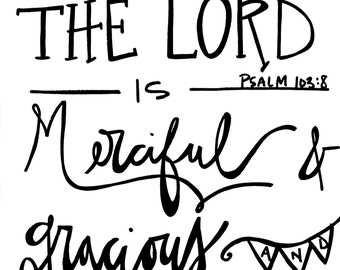 THE LORD
IS PSALM 103:8
Merciful &
gracious AND